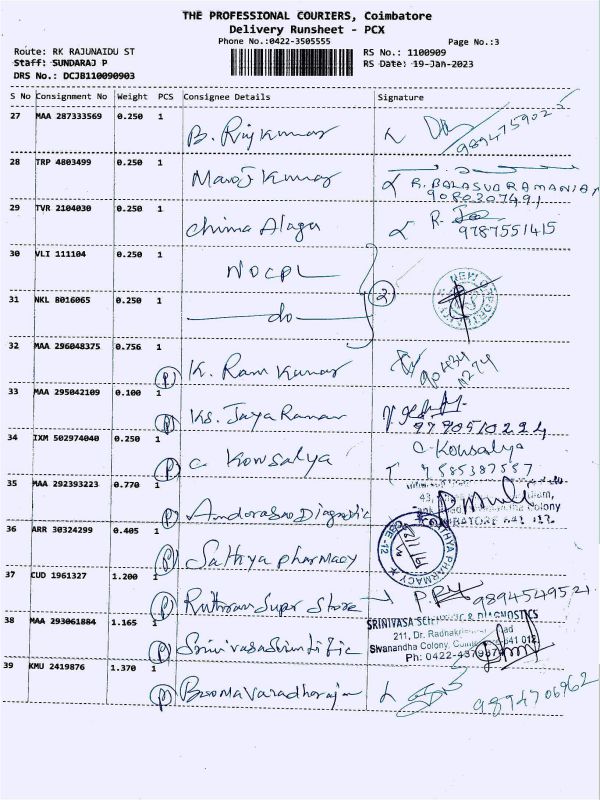 THE PROFESSIONAL COURIERS, Coimbatore
Delivery Runsheet - PCX
Phone No.:0422-3505555 Page No.:3
Route: RK RAJUNAIDU ST RS No.: 1100909
Staff: SUNDARAJ P RS Date: 19-Jan-2023
DRS No.: DCJB110090903
S No Consignment No Weight PCS Consignee Details Signature
27 MAA 287333569 0.250 1 B. Rajkumar
28 TRP 4803499 0.250 1 Manoj Kumar R. BALASUBRAMANIAN
9080307491
29 TVR 2104030 0.250 1 China Alagu R.
9787551415
30 VLI 111104 0.250 1 NOCPL
2
31 NKL 8016065 0.250 1 do
32 MAA 296048375 0.756 1 K. Ram Kumar
P
33 MAA 295042109 0.100 1 Ks. Jaya Raman
P 9790510224
34 IXM 502974040 0.250 1 C Kowsalya C. Kowsalya
P 7585387557
35 MAA 292393223 0.770 1
P Diagnostic 43, Colony
36 ARR 30324299 0.405 1 Sathya pharmacy
P SATHYA PHARMACY CBE-12
37 CUD 1961327 1.200 1 Ruthran Super Store
P
38 MAA 293061884 1.165 1 Srinivasa Scientific
P SRINIVASA SCIENTIFIC & DIAGNOSTICS
211, Dr. Radhakrishnan Road
Sivanandha Colony, Coimbatore 641 012
Ph: 0422-
39 KMU 2419876 1.370 1 Booma Varadharajan
P 9894706962